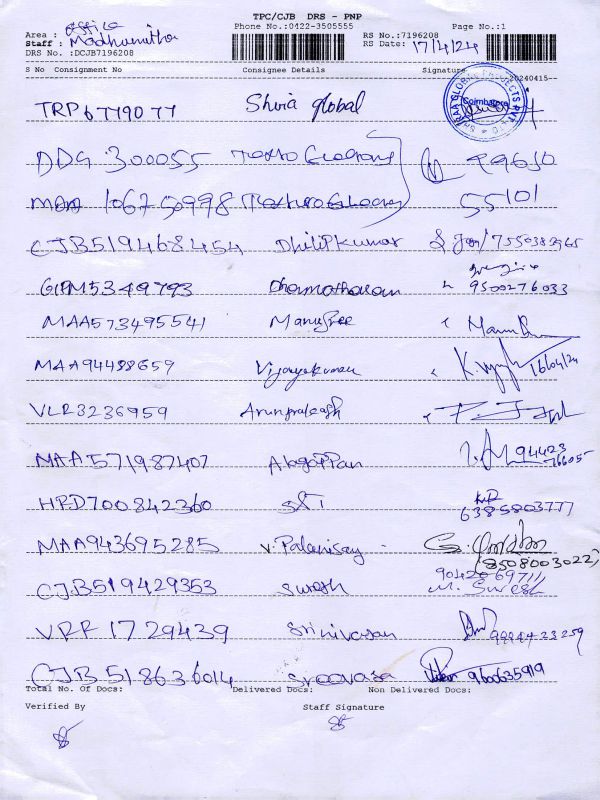 TPC/CJB DRS - PNP
Area : office Phone No.:0422-3505555 RS No.:7196208 Page No.:1
Staff : Madhumitha RS Date: 17/4/24
DRS No. :DCJB7196208
S No Consignment No Consignee Details Signature
20240415
TRP67790 77 Shiva global Coimbatore
DDG 300055 49650
MAA 106750998 55101
CJB519468454 Dhilipkumar 7550383965
GPM5349793 9500276033
MAA573495541 Manusree
MAA94488659 Vijayakumar 16/04/24
VLR3236959 Arunprakash
MAA571987407 Alagappan 94423
766055
HRD700842360 SKT 6385803777
MAA943695285 V. Palanisay
(8508003022)
CJB519429353 Suresh 9042869711
M. Suresh
VRR1729439 Srinivasan 9994423259
CJB518636014 Sreevasa 9600635919
Total No. Of Docs: Delivered Docs: Non Delivered Docs:
Verified By Staff Signature